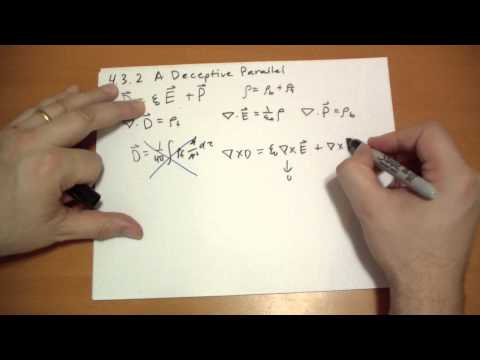 4.3.2 A Deceptive Parallel
= ε₀ E⃗ + P⃗ ρ = ρb + ρf
∇·D⃗ = ρf ∇·E⃗ = 1/ε₀ ρ ∇·P⃗ = ρb
D⃗ = 1/4π ∫ ρf r̂/r² dτ ∇×D = ε₀ ∇×E⃗ + ∇×
↓
0